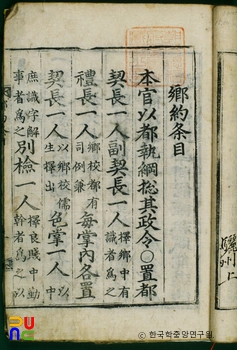 鄕約条目
本官以都執綱捴其政令○置都
契長一人副契長一人擇鄕中有識者爲之
禮長一人鄕校都有司例兼每掌內各置
契長一人以鄕校儒生擇出色掌一人以中
庶識字解事者爲之別檢一人擇良賤中勤幹者爲之
ⓒ한국학중앙연구원